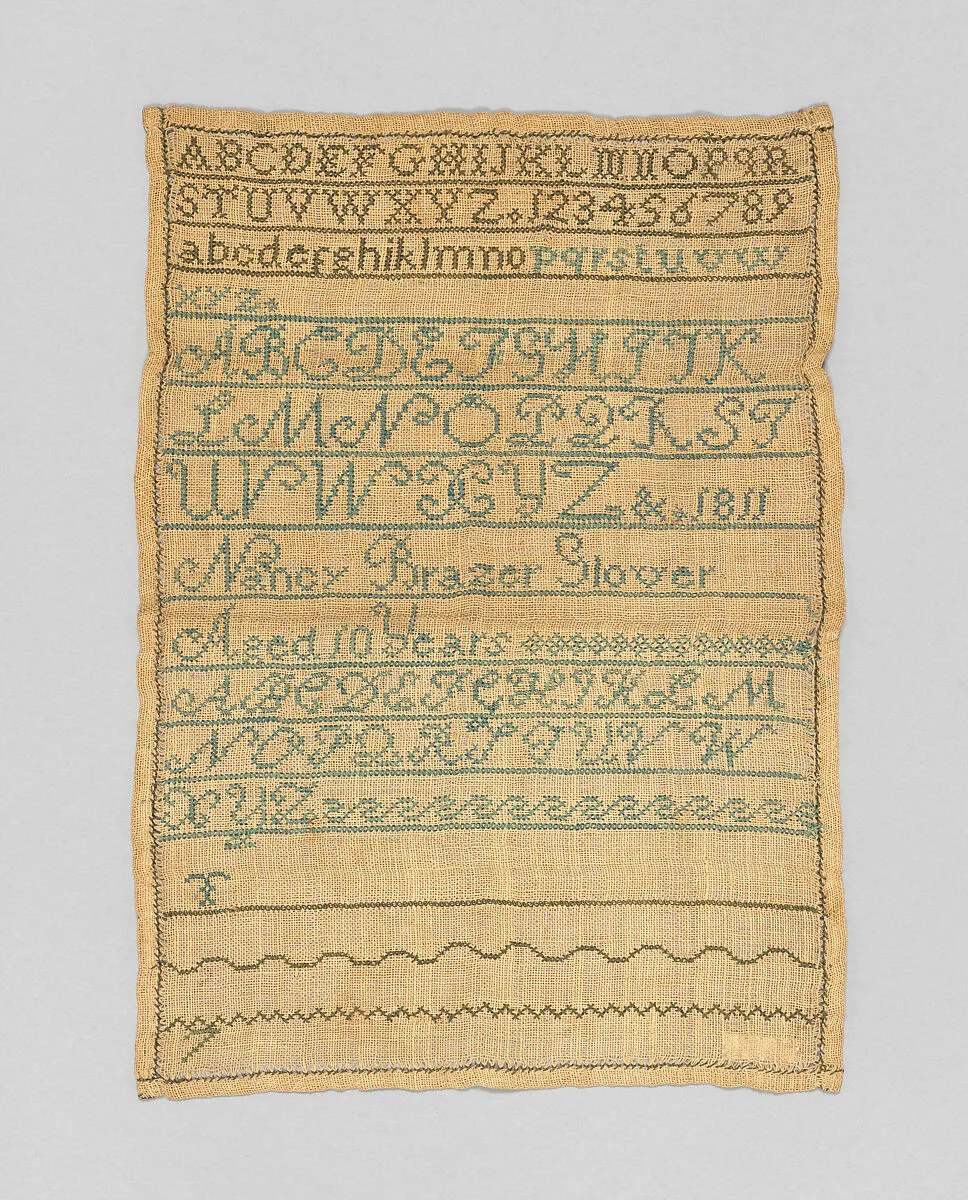 ABCDEFGHIJKLMNOPQR
STUVWXYZ.123456789
abcdefghiklmnopqrstuvw
xyz.
ABCDEFGHIJK
LMNOPQRST
UVWXYZ.&.1811
Nancy Brazer Slover
Aged 10 Years
ABCDEFGHIKLM
NOPQRSTUVW
XYZ
T